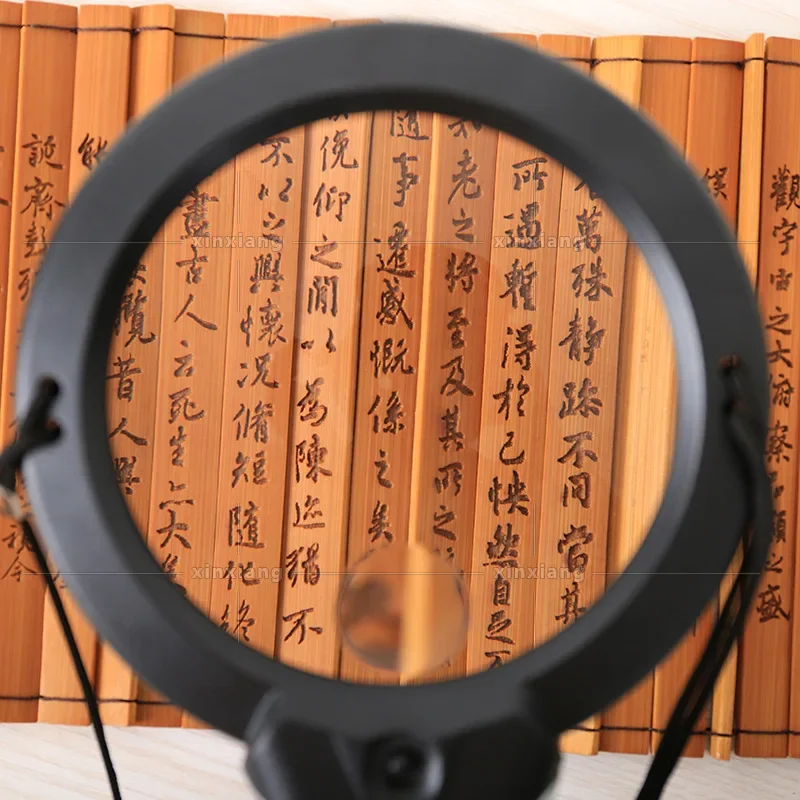 觀宇宙之大俯察品類之盛
萬殊靜躁不同當其
所遇暫得於己怏然自足不
老之將至及其所之
隨事遷感慨係之矣
俛仰之閒以為陳迹猶不
不以之興懷況脩短隨化終
盡古人云死生亦大矣
攬昔人興
能
誕齊彭殤
視今
xinxiang
xinxiang
xinxiang
xinxiang